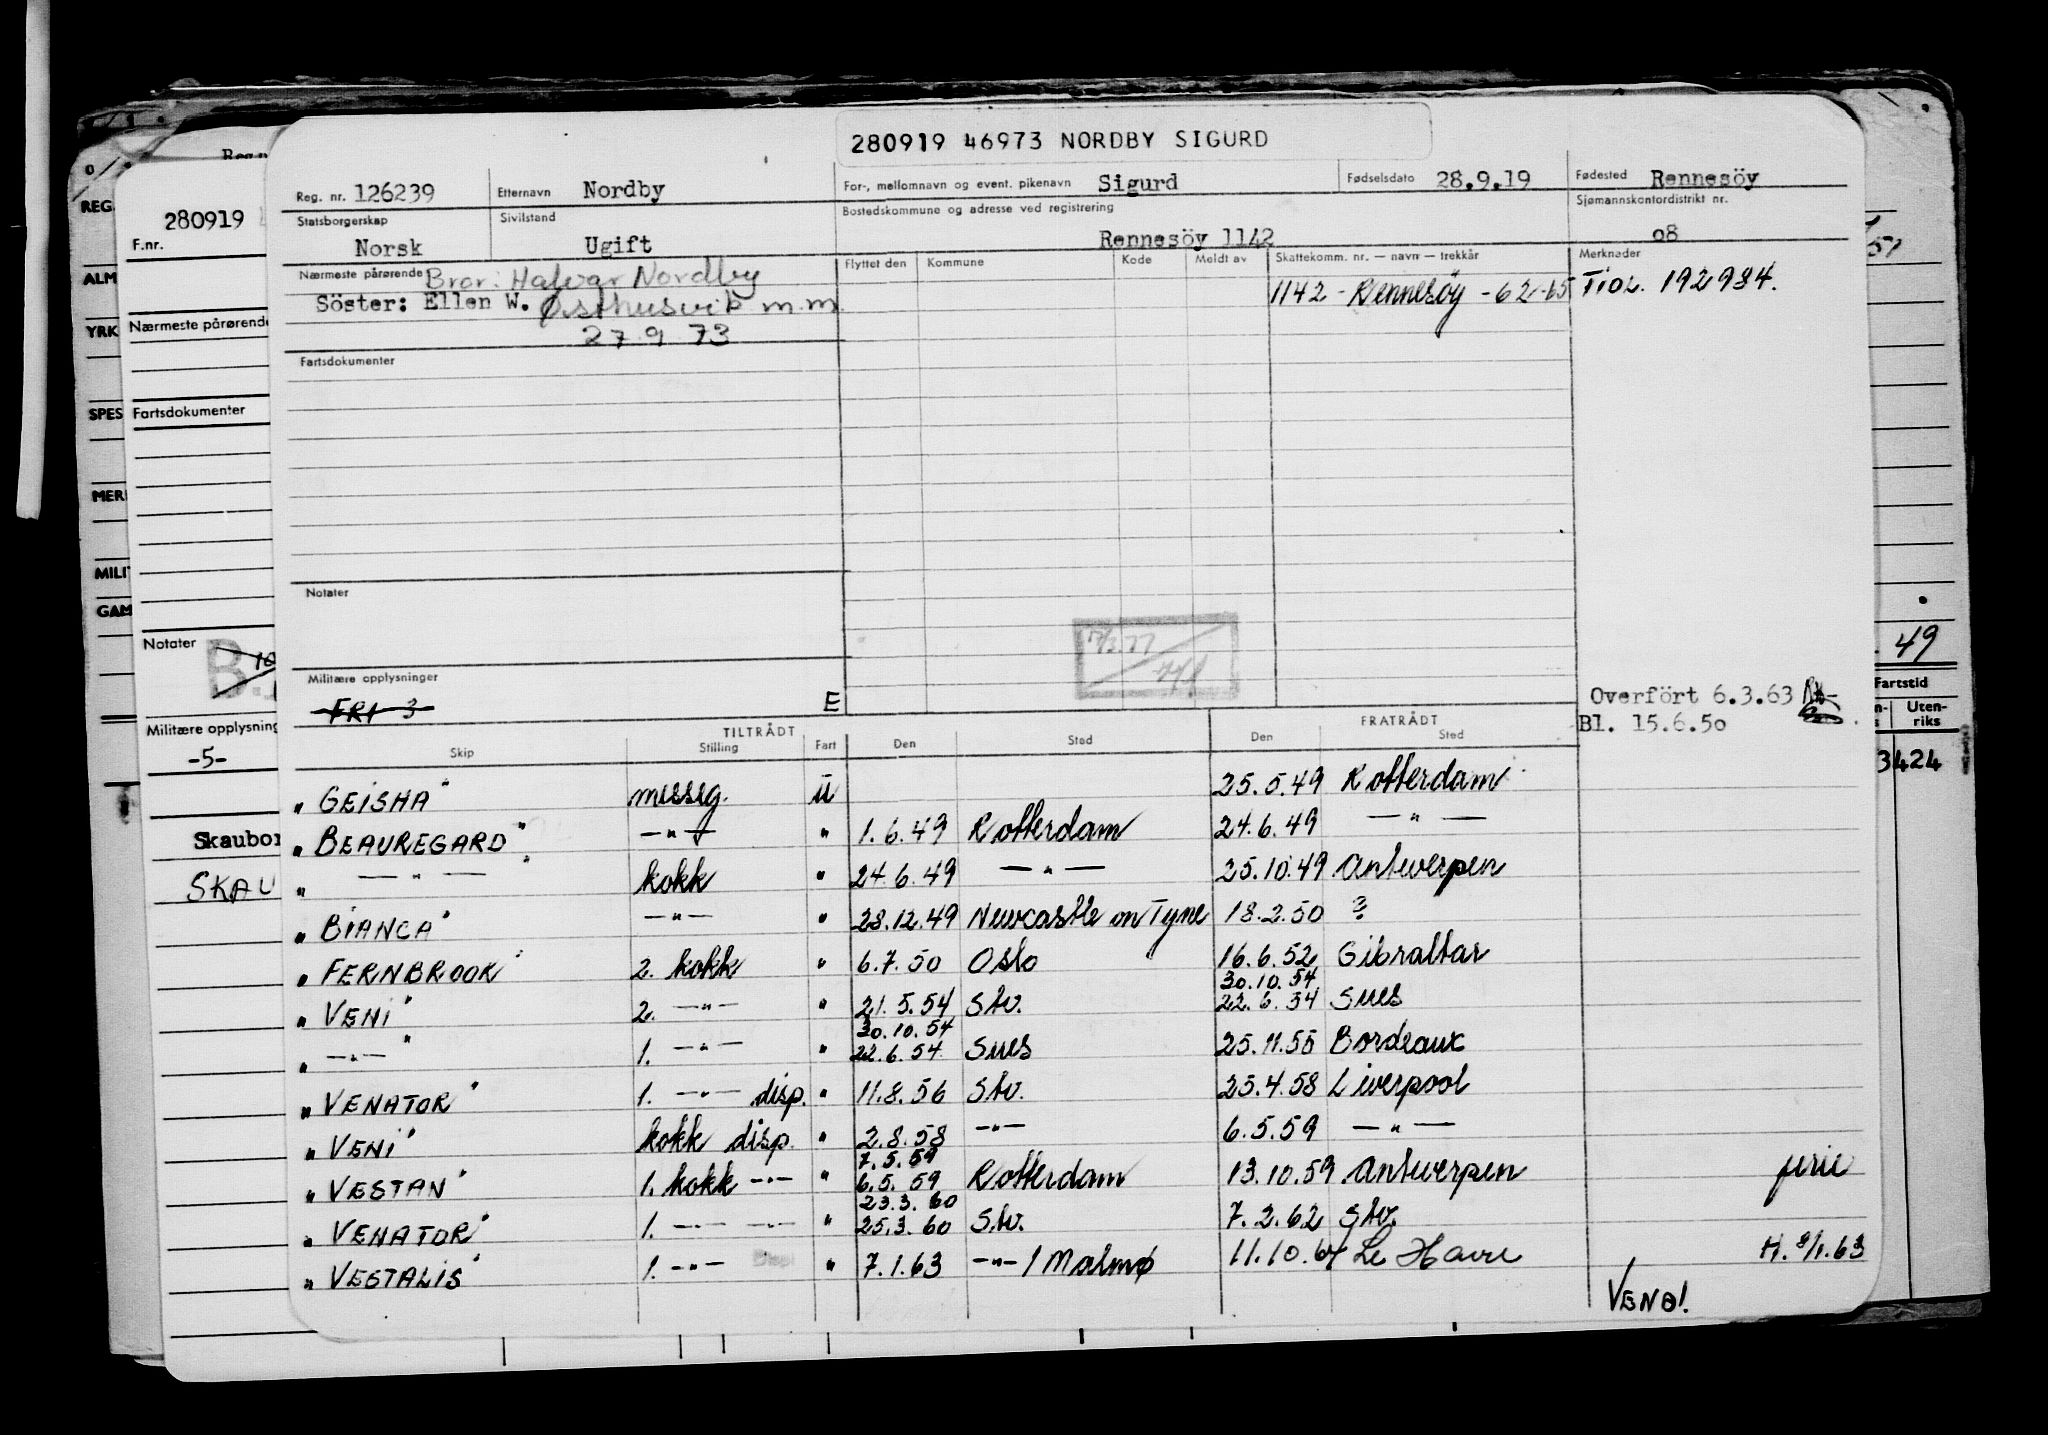 280919 46973 NORDBY SIGURD
Reg. nr. 126239 Etternavn Nordby For-, mellomnavn og event. pikenavn Sigurd Fødselsdato 28.9.19 Fødested Rennesöy
Statsborgerskap Norsk Sivilstand Ugift Bostedskommune og adresse ved registrering Rennesöy 1142 Sjømannskontordistrikt nr. 08
Nærmeste pårørende Bror: Halvar Nordby
Söster: Ellen W. Østhusvik m.m.
27.9 73
Flyttet den Kommune Kode Meldt av Skattekomm. nr. — navn — trekkår Merknader
1142 - Rennesöy - 62-65 Tiol. 192984.
Fartsdokumenter
Notater
17/2.77
Militære opplysninger
FRI 3 E
Overfört 6.3.63
Bl. 15.6.50
TILTRÅDT FRATRÅDT
Skip Stilling Fart Den Sted Den Sted
" GEISHA" messg. U 25.5.49 Rotterdam
" BEAUREGARD" —"— " 1.6.49 Rotterdam 24.6.49 — " —
" — " — kokk " 24.6.49 — " — 25.10.49 Antwerpen
" BIANCA" —"— " 28.12.49 Newcastle on Tyne 18.2.50 ?
" FERNBROOK" 2. kokk " 6.7.50 Oslo 16.6.52 Gibraltar
30.10.54
" VENI" 2. —"— " 21.5.54 Stv. 22.6.54 Sues
30.10.54
" —"— " 1. —"— " 22.6.54 Sues 25.11.55 Bordeaux
" VENATOR" 1. —"— disp. " 11.8.56 Stv. 25.4.58 Liverpool
" VENI" kokk disp. " 2.8.58 —"— 6.5.59 — " —
7.5.59
" VESTAN" 1. kokk —"— " 6.5.59 Rotterdam 13.10.59 Antwerpen ferie
23.3.60
" VENATOR" 1. —"— —"— " 25.3.60 Stv. 7.2.62 Stv.
" VESTALIS" 1. —"— Disp " 7.1.63 —"— / Malmø 11.10.64 Le Havre H. 8/1.63
VEND!
280919
F.nr.
Nærmeste pårørende
Fartsdokumenter
Notater
B.
Militære opplysning
-5-
Skaubor
SKAU
REG.
ALM
YRK
SPES
MER
MILI
GAM
51
49
Fartstid
Uten-
riks
3424